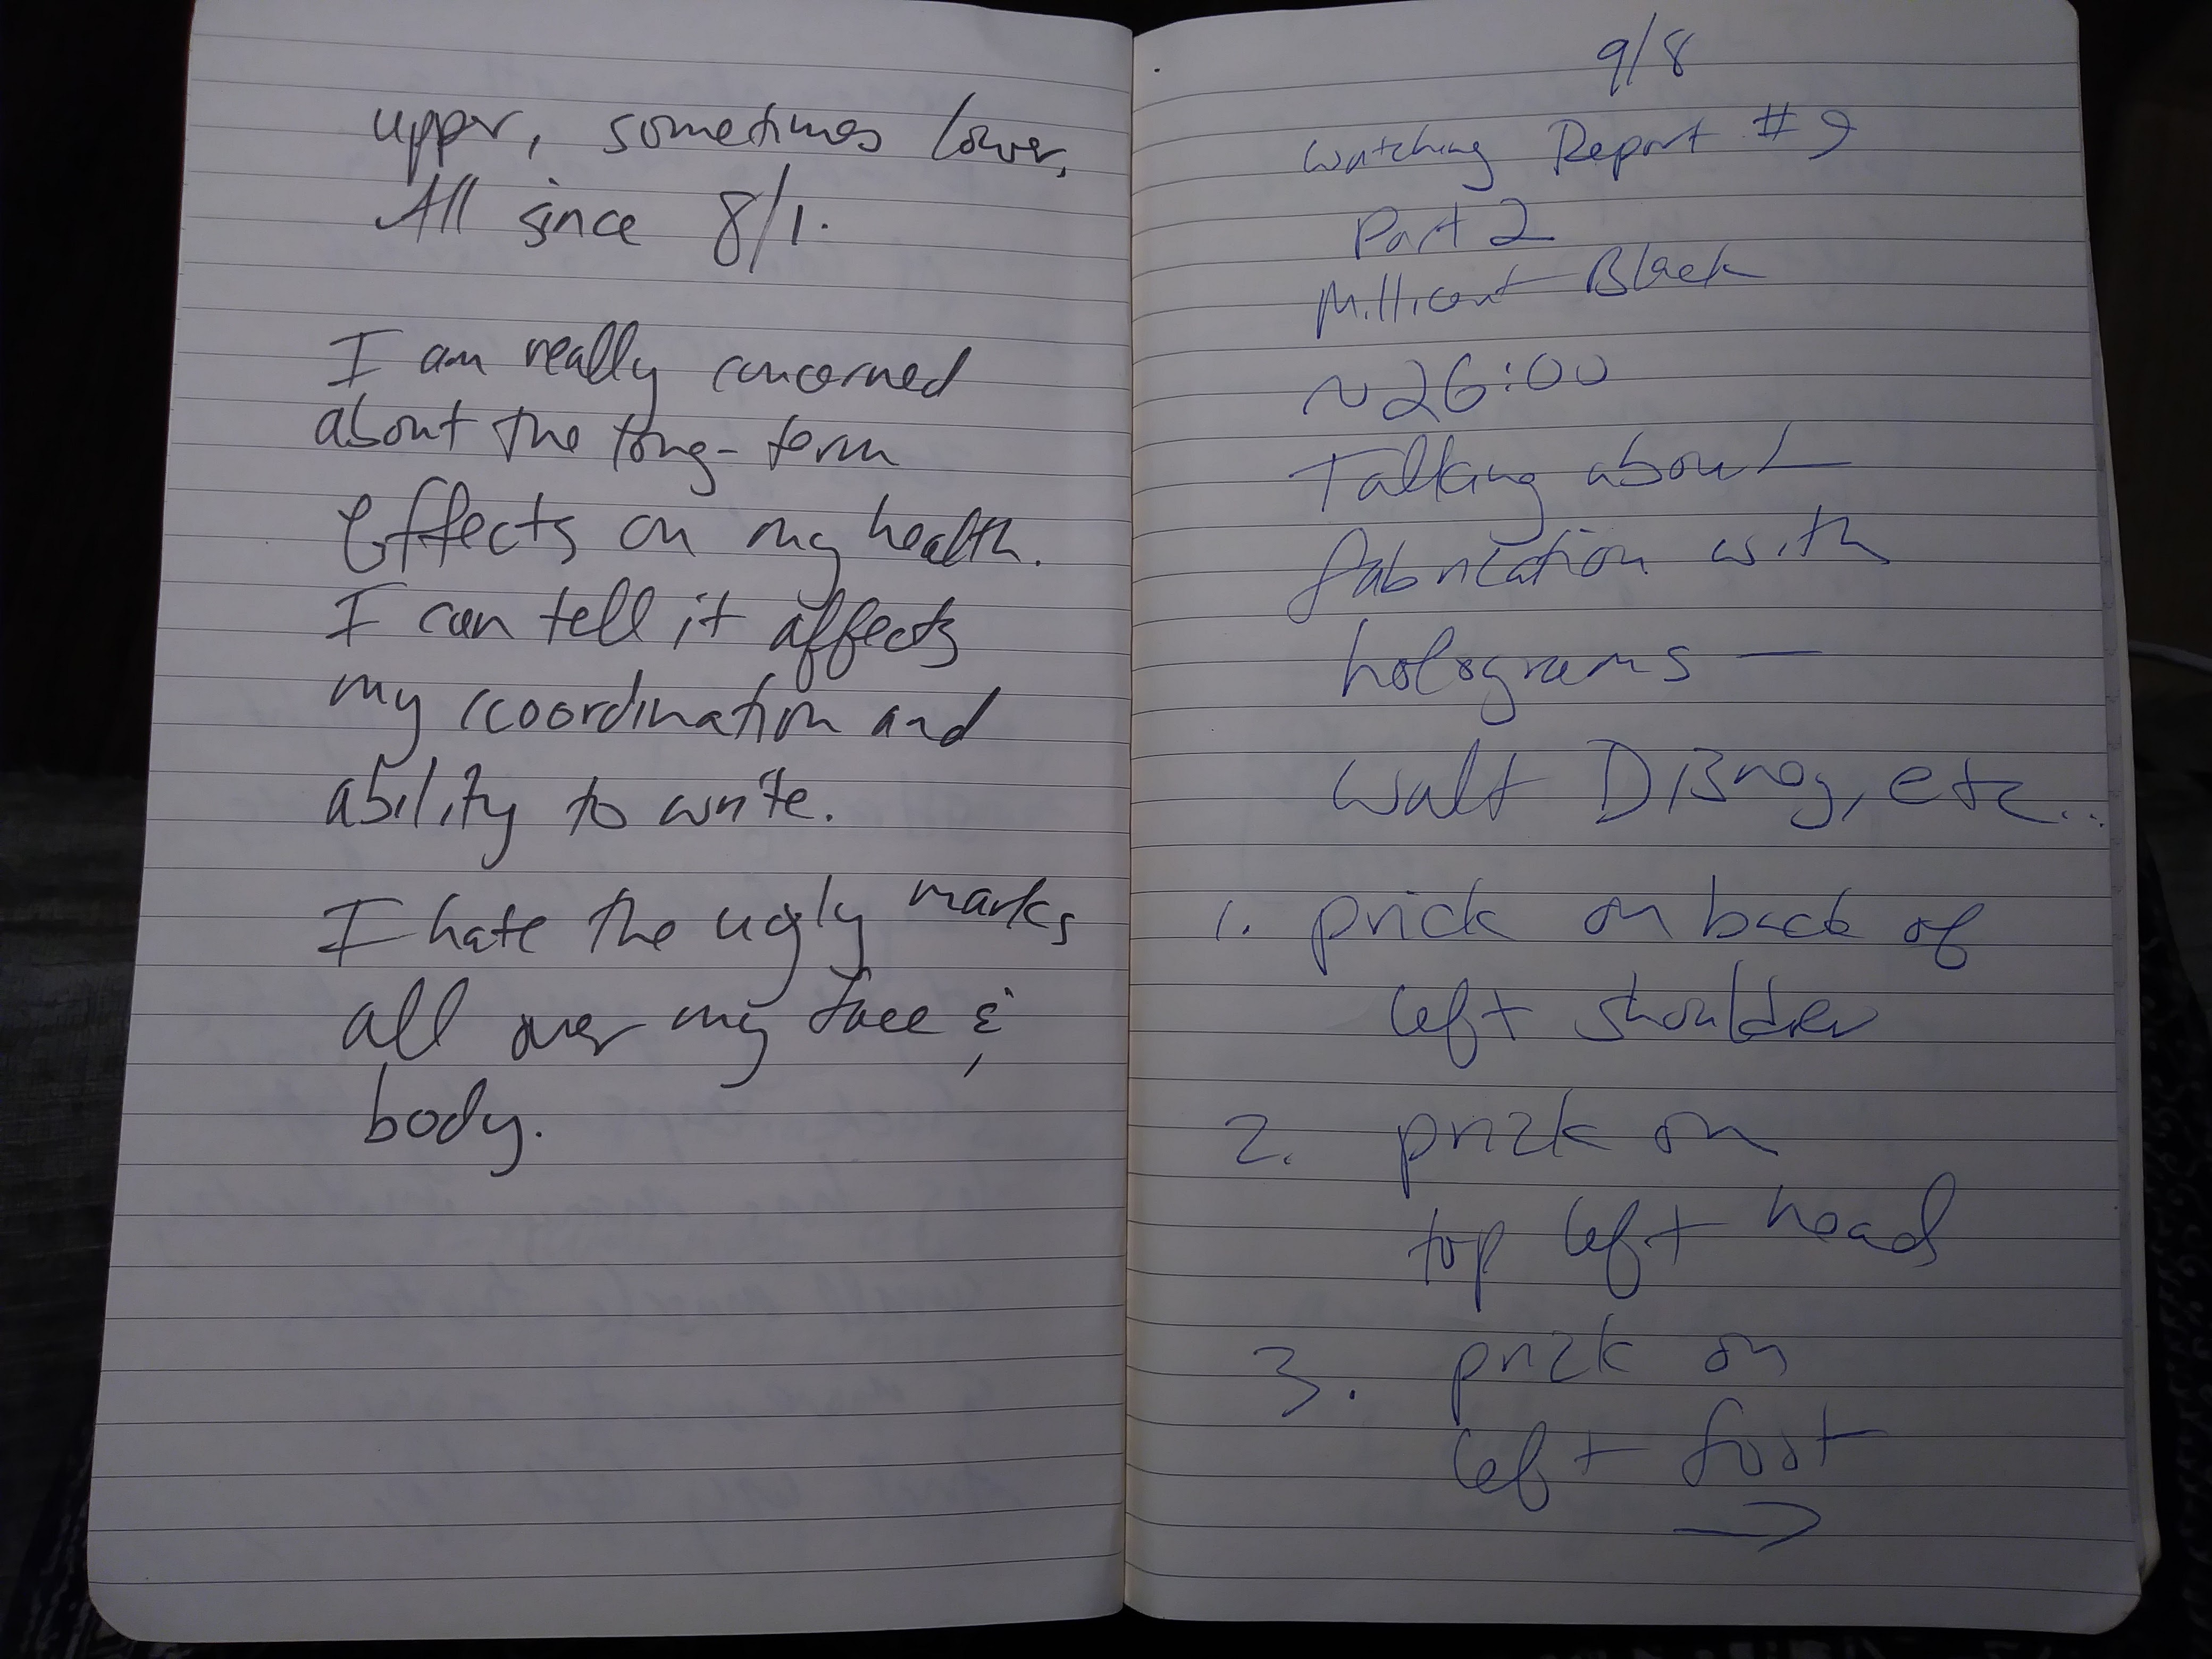 upper, sometimes lower,
All since 8/1.
I am really concerned
about the long-term
effects on my health.
I can tell it affects
my coordination and
ability to write.
I hate the ugly marks
all over my face &
body.
9/8
Watching Report #9
Part 2
Millicent Black
~26:00
Talking about
fabrication with
holograms —
Walt Disney, etc...
1. prick on back of
left shoulder
2. prick on
top left head
3. prick on
left foot
→